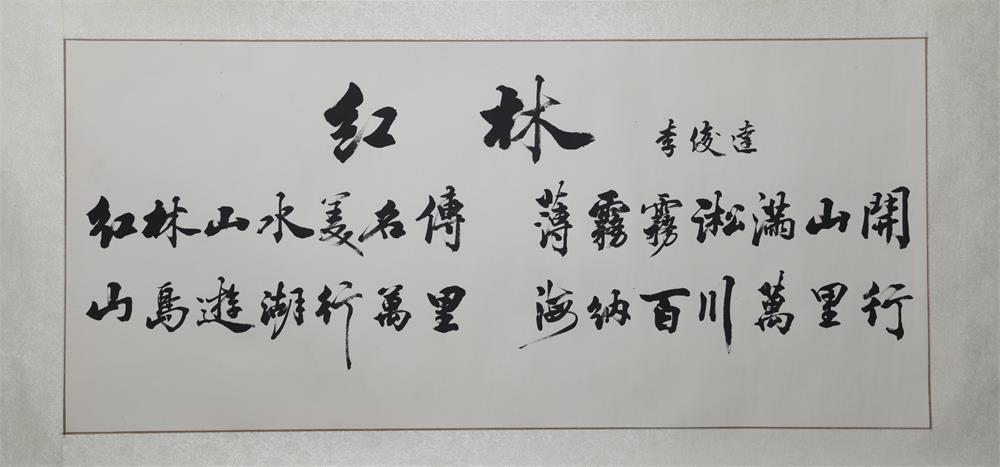 红林 李俊達
红林山水美名傳 薄霧霧淞滿山開
山鳥遊湖行萬里 海納百川萬里行